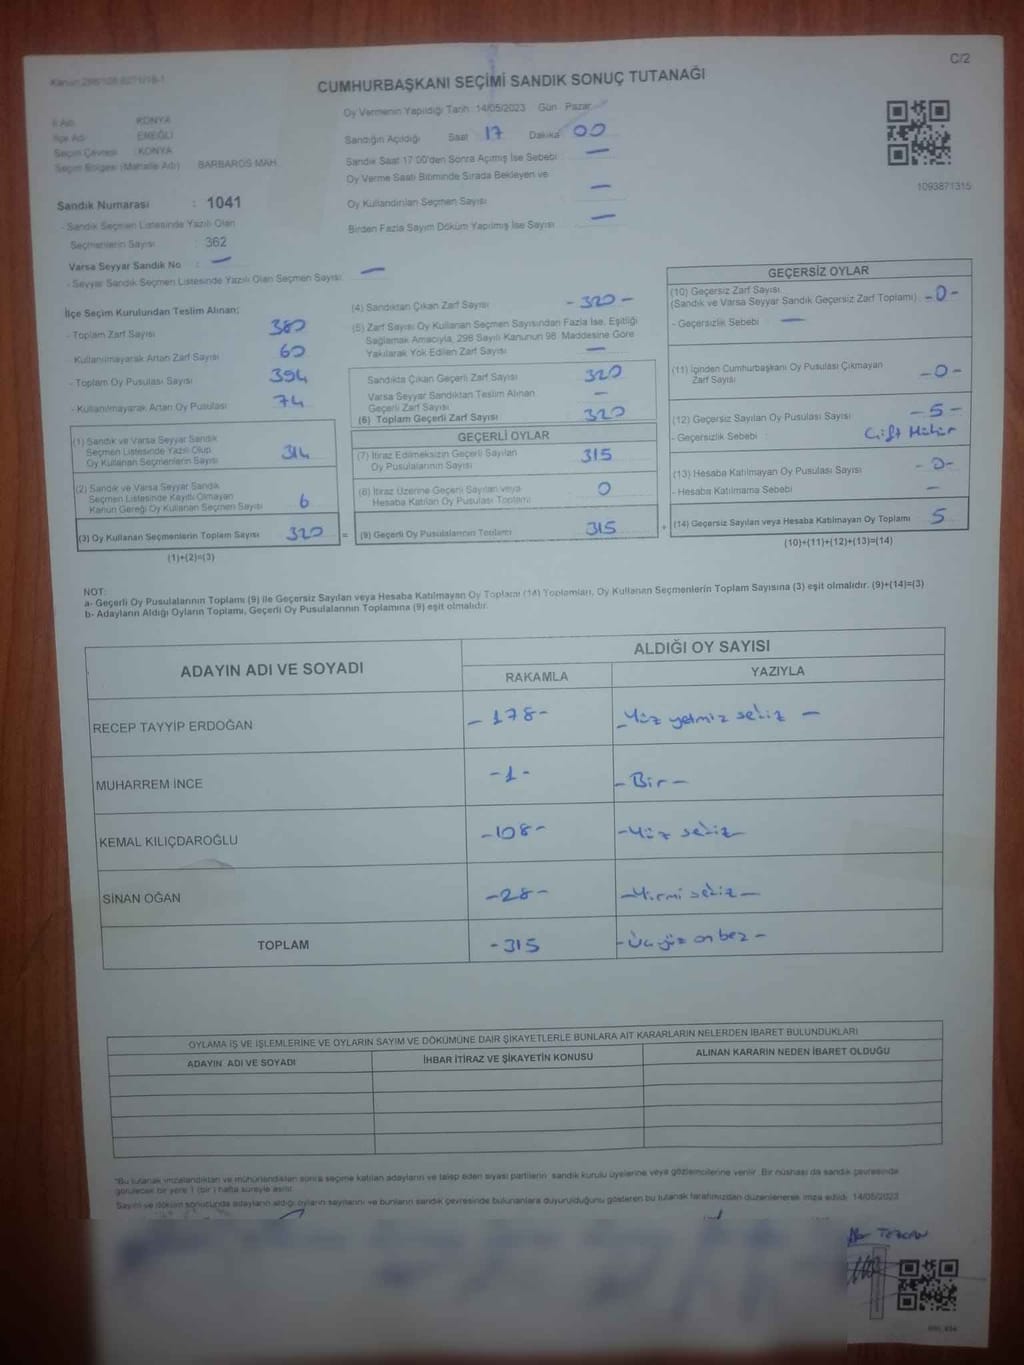 C/2
CUMHURBAŞKANI SEÇİMİ SANDIK SONUÇ TUTANAĞI
Oy Vermenin Yapıldığı Tarih : 14/05/2023 Gün : Pazar
İl Adı : KONYA
İlçe Adı : EREĞLİ
Seçim Çevresi : KONYA
Seçim Bölgesi (Mahalle Adı) : BARBAROS MAH.
Sandığın Açıldığı Saat 17 Dakika 00
Sandık Saat 17:00'den Sonra Açılmış İse Sebebi : —
Oy Verme Saati Bitiminde Sırada Bekleyen ve
Oy Kullandırılan Seçmen Sayısı —
Birden Fazla Sayım Döküm Yapılmış İse Sayısı —
1093871315
Sandık Numarası : 1041
- Sandık Seçmen Listesinde Yazılı Olan
Seçmenlerin Sayısı : 362
Varsa Seyyar Sandık No : —
- Seyyar Sandık Seçmen Listesinde Yazılı Olan Seçmen Sayısı: —
İlçe Seçim Kurulundan Teslim Alınan;
- Toplam Zarf Sayısı 380
- Kullanılmayarak Artan Zarf Sayısı 60
- Toplam Oy Pusulası Sayısı 394
- Kullanılmayarak Artan Oy Pusulası 74
(1) Sandık ve Varsa Seyyar Sandık
Seçmen Listesinde Yazılı Olup
Oy Kullanan Seçmenlerin Sayısı 314
(2) Sandık ve Varsa Seyyar Sandık
Seçmen Listesinde Kayıtlı Olmayan
Kanun Gereği Oy Kullanan Seçmen Sayısı 6
(3) Oy Kullanan Seçmenlerin Toplam Sayısı 320
(1)+(2)=(3)
(4) Sandıktan Çıkan Zarf Sayısı - 320 -
(5) Zarf Sayısı Oy Kullanan Seçmen Sayısından Fazla İse, Eşitliği
Sağlamak Amacıyla, 298 Sayılı Kanunun 98. Maddesine Göre
Yakılarak Yok Edilen Zarf Sayısı —
Sandıkta Çıkan Geçerli Zarf Sayısı 320
Varsa Seyyar Sandıktan Teslim Alınan
Geçerli Zarf Sayısı —
(6) Toplam Geçerli Zarf Sayısı 320
GEÇERLİ OYLAR
(7) İtiraz Edilmeksizin Geçerli Sayılan
Oy Pusulalarının Sayısı 315
(8) İtiraz Üzerine Geçerli Sayılan veya
Hesaba Katılan Oy Pusulası Toplamı 0
= (9) Geçerli Oy Pusulalarının Toplamı 315 +
GEÇERSİZ OYLAR
(10) Geçersiz Zarf Sayısı
(Sandık ve Varsa Seyyar Sandık Geçersiz Zarf Toplamı) -0-
- Geçersizlik Sebebi : —
(11) İçinden Cumhurbaşkanı Oy Pusulası Çıkmayan
Zarf Sayısı -0-
(12) Geçersiz Sayılan Oy Pusulası Sayısı -5-
- Geçersizlik Sebebi : Çift Mühür
(13) Hesaba Katılmayan Oy Pusulası Sayısı -0-
- Hesaba Katılmama Sebebi —
(14) Geçersiz Sayılan veya Hesaba Katılmayan Oy Toplamı 5
(10)+(11)+(12)+(13)=(14)
NOT:
a- Geçerli Oy Pusulalarının Toplamı (9) ile Geçersiz Sayılan veya Hesaba Katılmayan Oy Toplamı (14) Toplamları, Oy Kullanan Seçmenlerin Toplam Sayısına (3) eşit olmalıdır. (9)+(14)=(3)
b- Adayların Aldığı Oyların Toplamı, Geçerli Oy Pusulalarının Toplamına (9) eşit olmalıdır.
ADAYIN ADI VE SOYADI
ALDIĞI OY SAYISI
RAKAMLA YAZIYLA
RECEP TAYYİP ERDOĞAN - 178 - - Yüz yetmiz sekiz -
MUHARREM İNCE -1- - Bir -
KEMAL KILIÇDAROĞLU -108- - Yüz sekiz -
SİNAN OĞAN -28- - Yirmi sekiz -
TOPLAM - 315 - Üçyüz onbez -
OYLAMA İŞ VE İŞLEMLERİNE VE OYLARIN SAYIM VE DÖKÜMÜNE DAİR ŞİKAYETLERLE BUNLARA AİT KARARLARIN NELERDEN İBARET BULUNDUKLARI
ADAYIN ADI VE SOYADI İHBAR İTİRAZ VE ŞİKAYETİN KONUSU ALINAN KARARIN NEDEN İBARET OLDUĞU
*Bu tutanak imzalandıktan ve mühürlendikten sonra seçime katılan adayların ve talep eden siyasi partilerin sandık kurulu üyelerine veya gözlemcilerine verilir. Bir nüshası da sandık çevresinde
görülecek bir yere 1 (bir) hafta süreyle asılır.
Sayım ve döküm sonucunda adayların aldığı oyların sayılarını ve bunların sandık çevresinde bulunanlara duyurulduğunu gösteren bu tutanak tarafımızdan düzenlenerek imza edildi. 14/05/2023